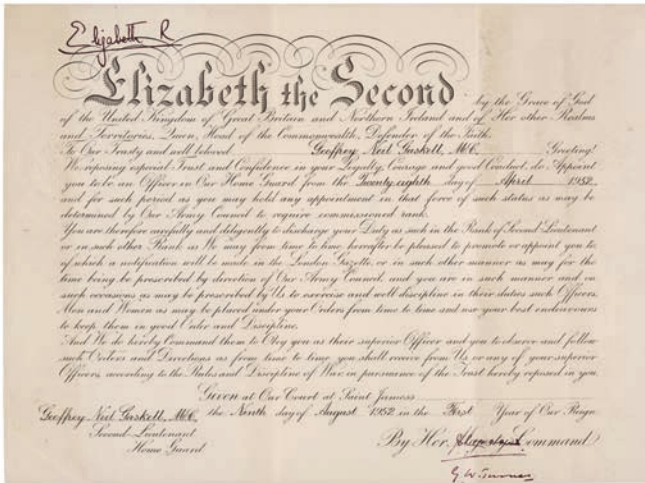 Elizabeth R
Elizabeth the Second by the Grace of God
of the United Kingdom of Great Britain and Northern Ireland and of Her other Realms
and Territories, Queen, Head of the Commonwealth, Defender of the Faith.
To Our Trusty and well beloved Geoffrey Neil Gaskell, M.C. Greeting!
We, reposing especial Trust and Confidence in your Loyalty, Courage and good Conduct, do Appoint
you to be an Officer in Our Home Guard from the Twenty eighth day of April 1952
and for such period as you may hold any appointment in that force of such status as may be
determined by Our Army Council to require commissioned rank.
You are therefore carefully and diligently to discharge your Duty as such in the Rank of Second Lieutenant
or in such other Rank as We may from time to time hereafter be pleased to promote or appoint you to,
of which a notification will be made in the London Gazette, or in such other manner as may for the
time being be prescribed by direction of Our Army Council, and you are in such manner and on
such occasions as may be prescribed by Us to exercise and well discipline in their duties such Officers,
Men and Women as may be placed under your Orders from time to time and use your best endeavours
to keep them in good Order and Discipline.
And We do hereby Command them to Obey you as their superior Officer and you to observe and follow
such Orders and Directions as from time to time you shall receive from Us, or any of your superior
Officers, according to the Rules and Discipline of War, in pursuance of the Trust hereby reposed in you.
Given at Our Court at Saint James's
the Ninth day of August 1952 in the First Year of Our Reign
Geoffrey Neil Gaskell, M.C.
Second-Lieutenant
Home Guard
By Her Majesty's Command
G. W. Turner